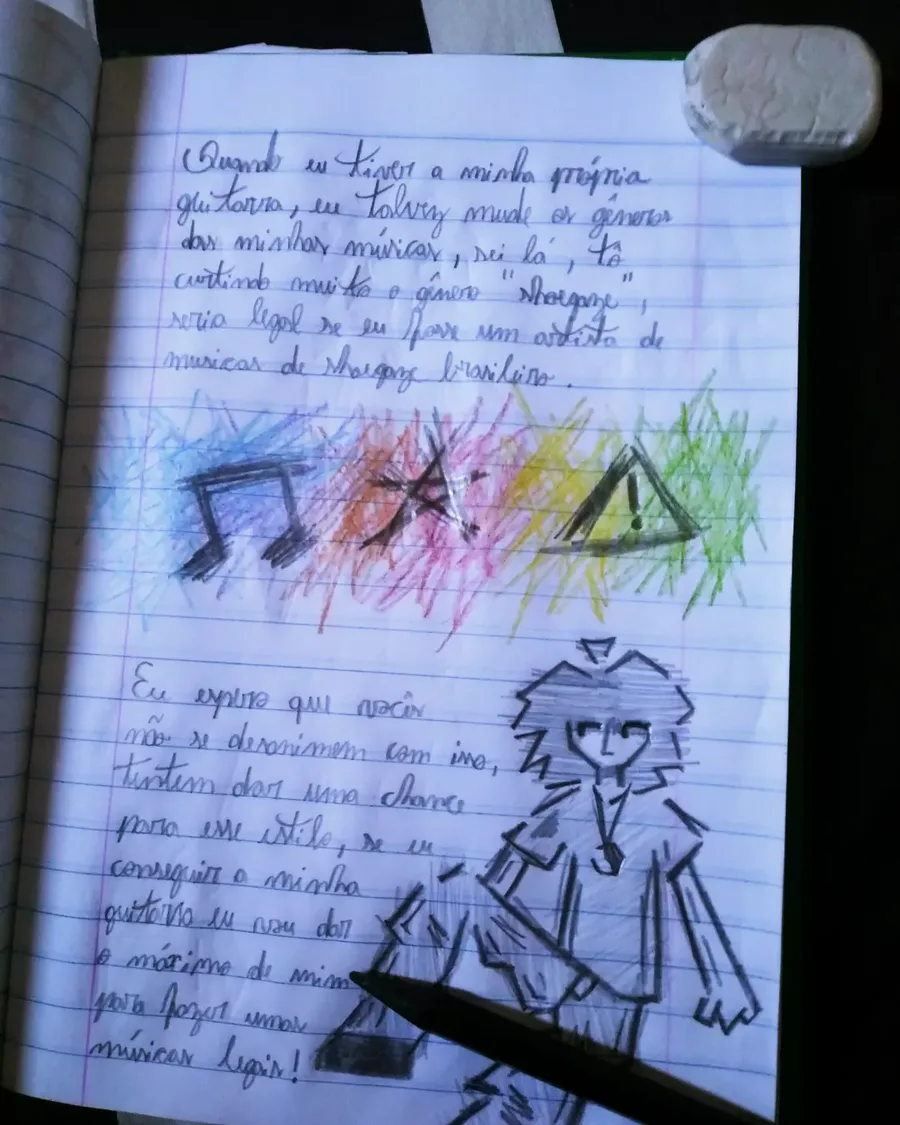 Quando eu tiver a minha própria
guitarra, eu talvez mude os gêneros
das minhas músicas, sei lá, tô
curtindo muito o gênero "shoegaze",
seria legal se eu fosse um artista de
musicas de shoegaze brasileiro.
!
Eu espero que vocês
não se desanimem com isso,
tentem dar uma chance
para esse estilo, se eu
conseguir a minha
guitarra eu vou dar
o máximo de mim
para fazer umas
músicas legais!